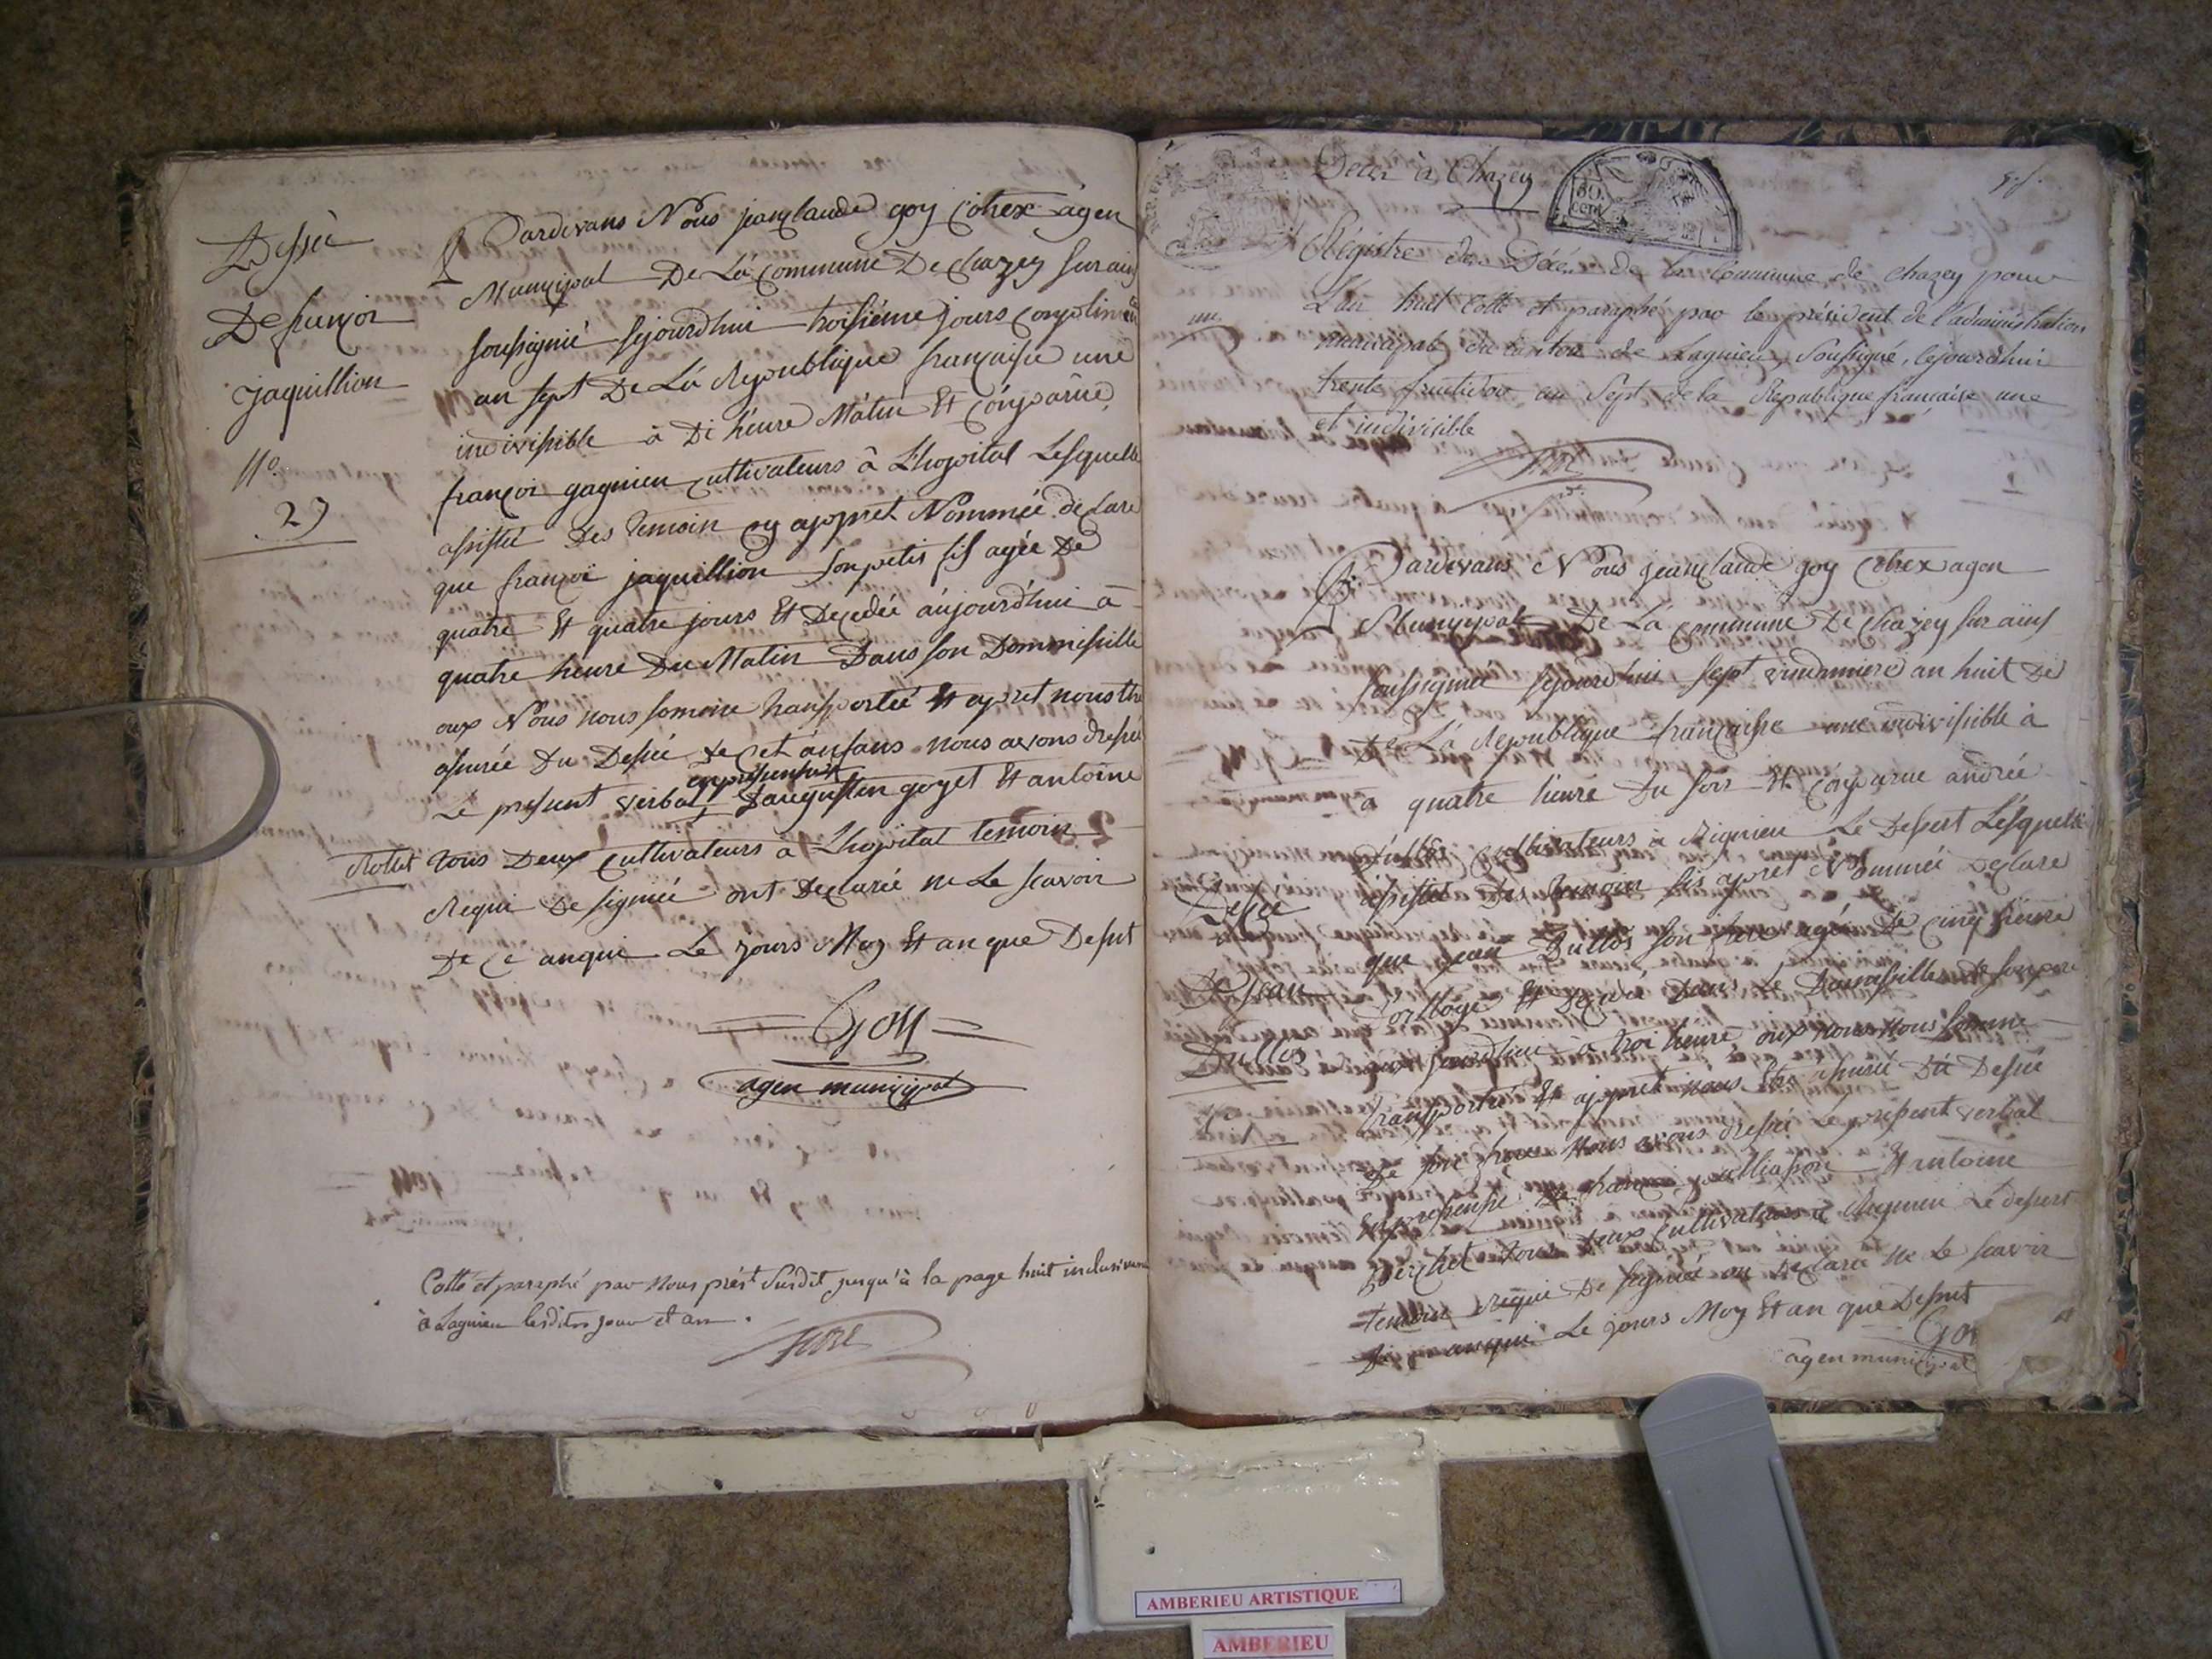 Dessée
De françoi
jaquillion
N°
29
Pardevans Nous jeanclaude goy Cohex agen
Municipal De Lá Commune De Chazey sur ains
soussignié sejourdhui troisiéme jours Conplimen
an sept De Lá Republique française une
indivisible à Di héure Mátin Et Cónparúe
françoi gagnieu Cultivateurs â Lhopital Lesquelle
assisté des temoin cy appret Nommée declare
que françoi jaquillion son petis fis agée De
quatre Et quatre jours Et Decedée aujourdhui á
quatre heure Du Matin Dans son Dommisille
oux Nous nous somme transportée Et apret nous etre
assurée Du Dessée De Cet ánfans nous avons dressé
en presensse
Le present verbal Daugusten goyet Et antoine
Rollet tous Deux Cultivateurs a Lhopital temoin
Requi De signiée ont Declarée ne Le scavoir
De Ce anqui Le jours Moy Et an que Desut
Goy
agen municipal
Cotté et paraphé par nous prést susdit jusqu'à la page huit inclusivement
à Lagnieu lesdits jour et an.
Decès à Chazey
50.
cent
Régistre des Décès de la Commune de chazey pour
L'an huit Cotté et paraphé par le président de l'administration
un.
municipale du canton de Lagnieu, soussigné, cejourdhui
trente fructidor an Sept de la République française une
et indivisible
Pardevans Nous jeanclaude goy Cohex agen
Municipal De Lá Commune De Chazey sur ains
soussignié sejourdhui sept vindemiere an huit De
De Lá Republique française une indivisible à
a quatre héure Du soir Et Cónparue andrée
Dullos Cultivateurs à Rignieu Le Desert Lesquelle
assisté des temoin sis apret Nommée Declare
Desée
que jean Dullos son frere agée De Cinq héure
De jean
Dorlloge Et Decedé Dans Le Domissille de son pere
Dullos
aujourdhui à troi heure oux nous nous somme
transportée Et appret nous etre assurée Dú Desée
De son frere nous avons dressé Le present verbal
En presensse De françoi Et antoine
Berchet tous Deux Cultivateurs a Rignieu Le desert
temoin Requi De signiée on Declarée ne Le scavoir
anqui Le jours Moy Et an que Desut
Goy
agen municipal
AMBERIEU ARTISTIQUE
AMBERIEU